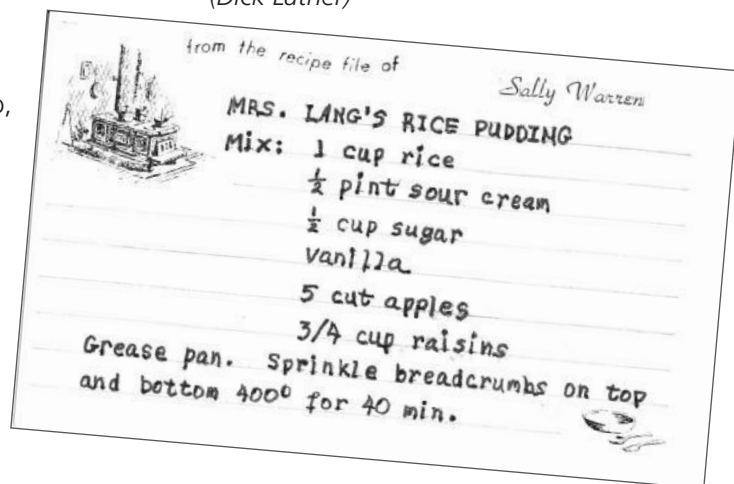 (Dick Luther)
from the recipe file of
Sally Warren
MRS. LANG'S RICE PUDDING
Mix: 1 cup rice
½ pint sour cream
½ cup sugar
vanilla
5 cut apples
3/4 cup raisins
Grease pan. Sprinkle breadcrumbs on top
and bottom 400° for 40 min.